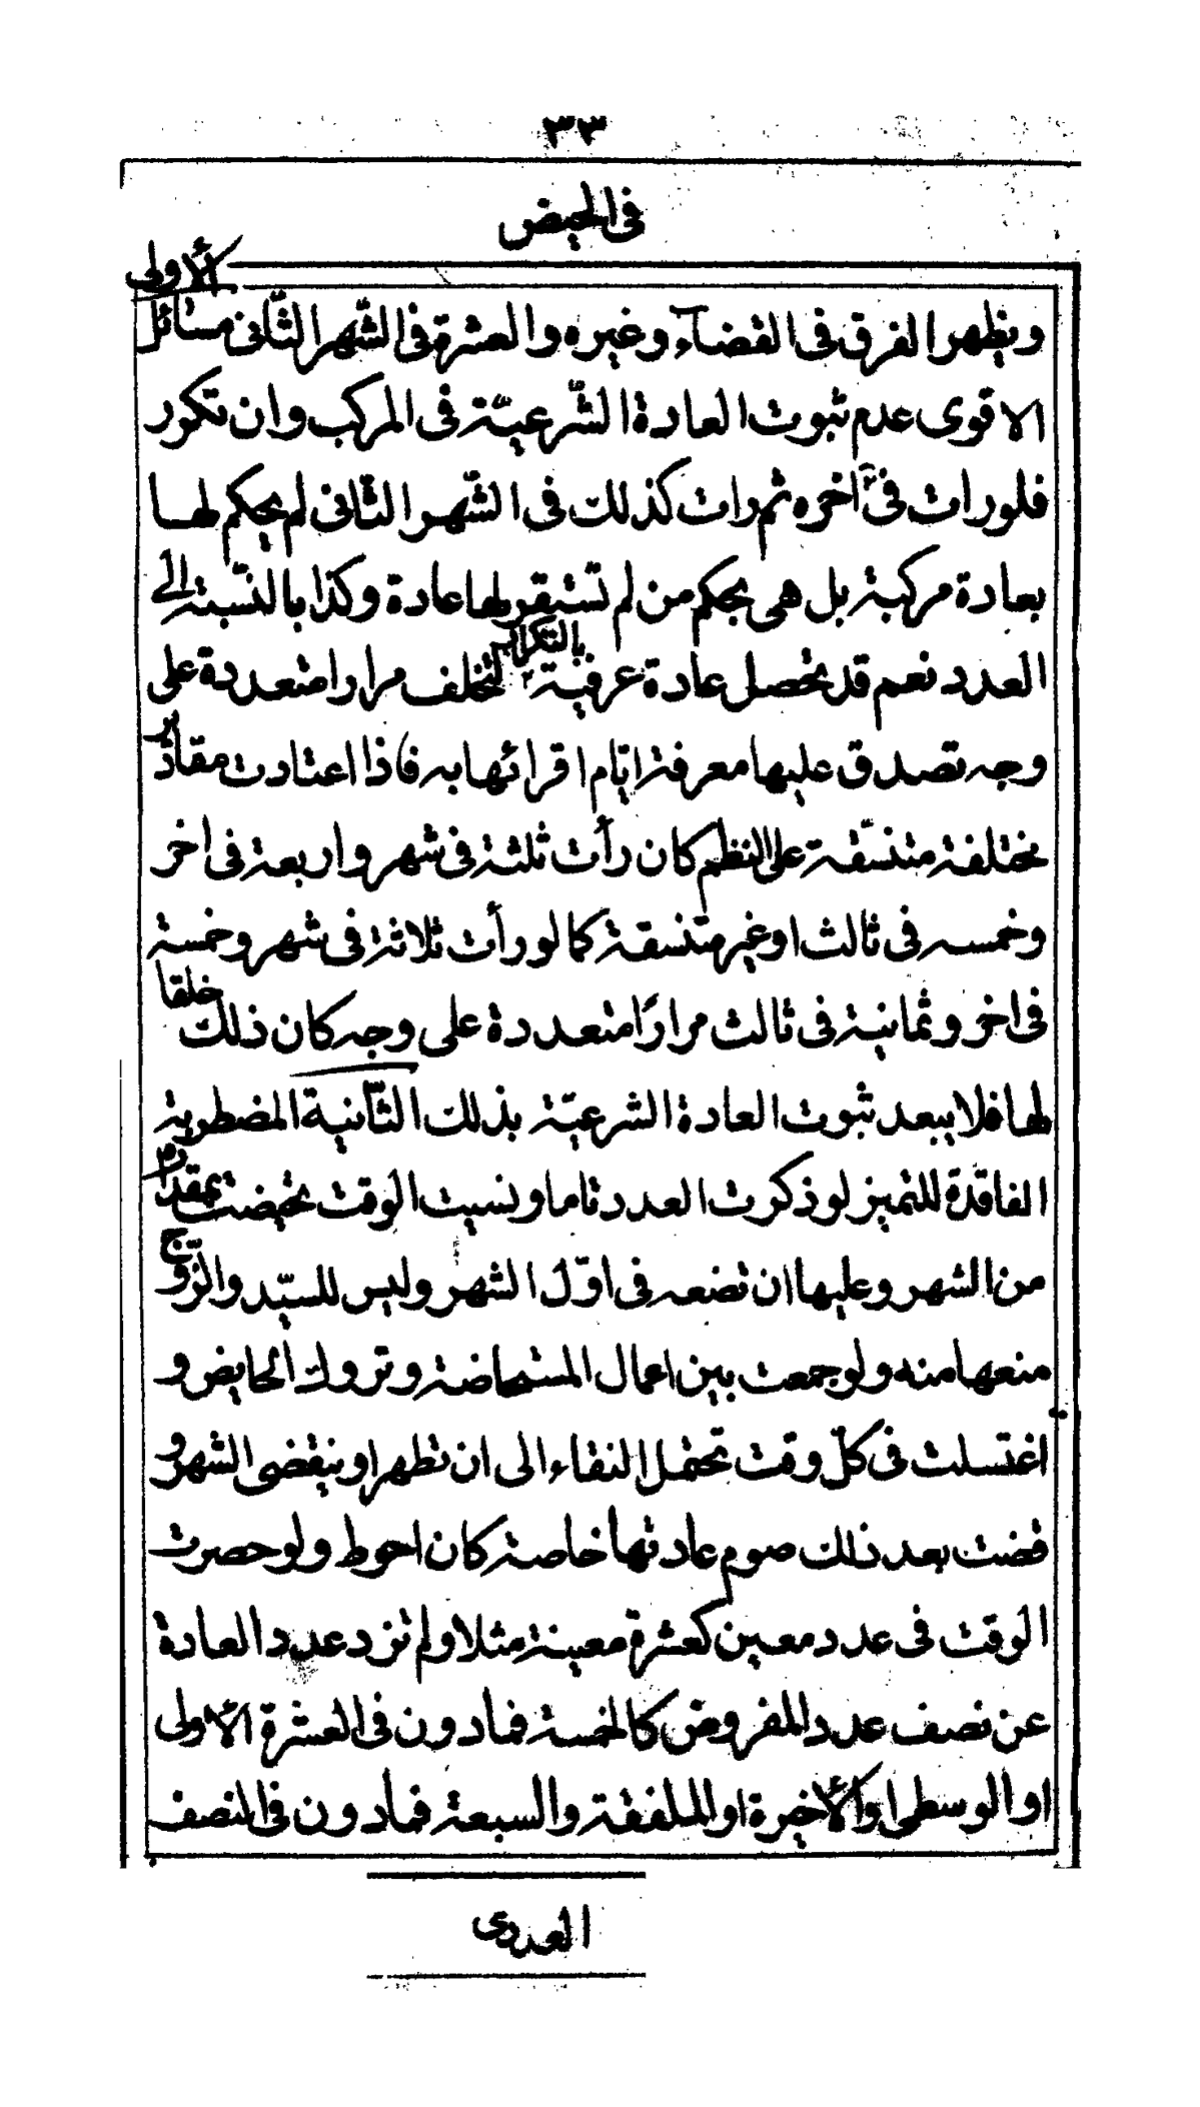 ٣٣
فى الحيض
ويظهر الفرق فى القضآء وغيره والعشرة فى الشّهر الثّانى مسائل الأولى
الاقوى عدم ثبوت العادة الشّرعيّة فى المركب وان تكرر
فلو رات فى آخره ثم رات كذلك فى الشّهر الثّانى لم يحكم لها
بعادة مركبة بل هى بحكم من لم تستقر لها عادة وكذا بالنّسبة الى
العدد نعم قد تحصل عادة عرفية بالتكرار لتخلف مرارا متعددة على
وجه تصدق عليها معرفة ايّام اقرائها به فاذا اعتادت مقادير
مختلفة متنسّقة على النظم كان رأت ثلثة فى شهر واربعة فى اخر
وخمسه فى ثالث او غير متنسقة كما لو رأت ثلاثة فى شهر وخمسة
فى اخر وثمانية فى ثالث مرارًا متعددة على وجه كان ذلك خلقا
لها فلا يبعد ثبوت العادة الشرعيّة بذلك الثّانية المضطربة
الفاقدة للتميز لو ذكرت العدد تاما ونسيت الوقت تحيضت بمقداره
من الشهر وعليها ان تضعه فى اوّل الشهر وليس للسيّد والزّوج
منعها منه ولو جمعت بين اعمال المستحاضة وتروك الحايض و
اغتسلت فى كلّ وقت تحتمل النقاء الى ان تطهر او ينقضى الشهر و
قضت بعد ذلك صوم عادتها خاصة كان احوط ولو حصرت
الوقت فى عدد معين كعشرة معينة مثلا ولم تزد عدد العادة
عن نصف عدد المفروض كالخمسة فمادون فى العشرة الأولى
او الوسطى او الأخيرة او الملفقة والسبعة فمادون فى النصف
العددى